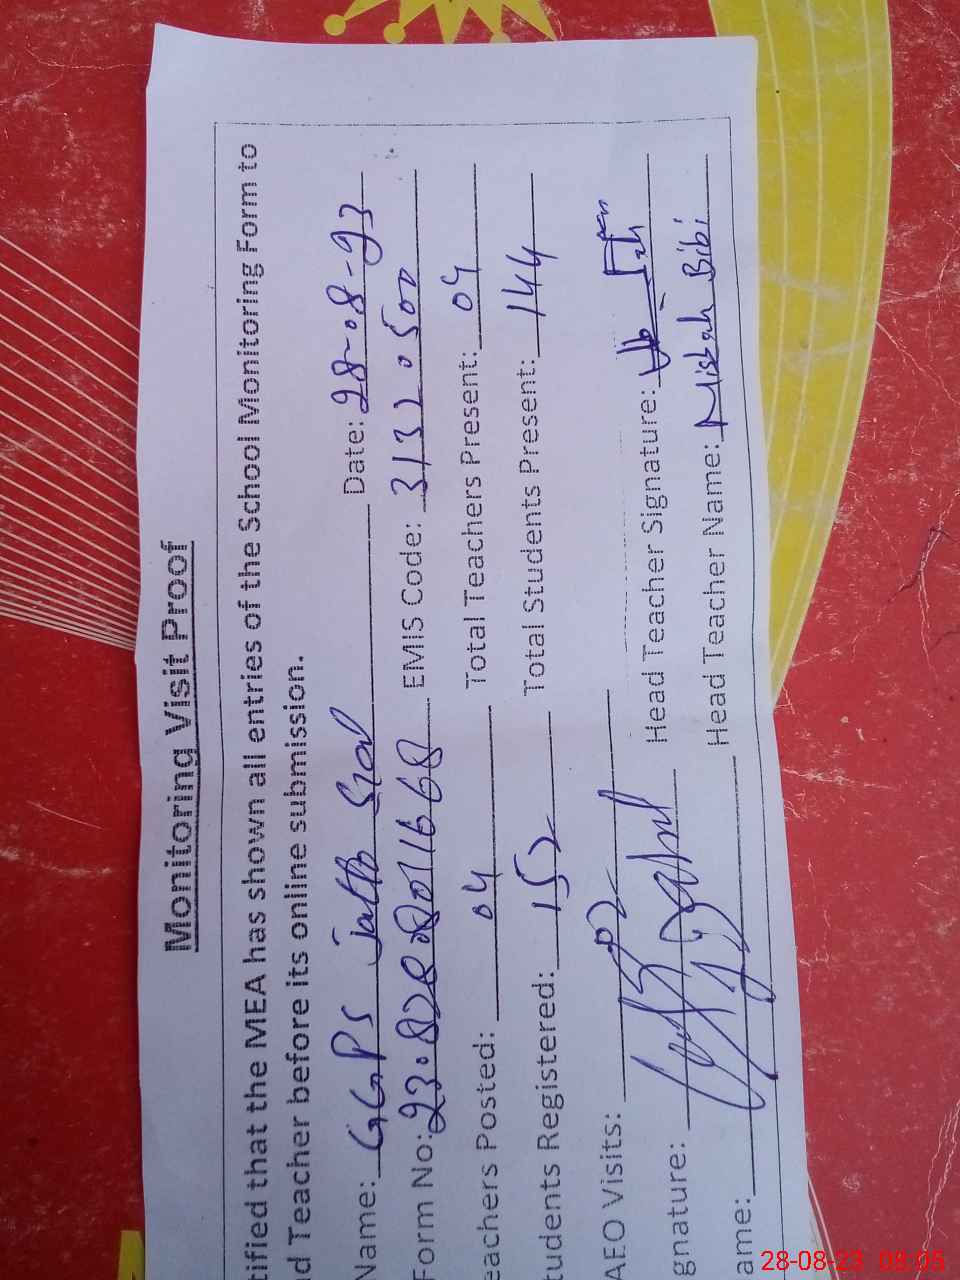 Monitoring Visit Proof
tified that the MEA has shown all entries of the School Monitoring Form to
d Teacher before its online submission.
Name: GGPS Jatto Sial Date: 28-08-23
Form No: EMIS Code: 31320500
eachers Posted: 04 Total Teachers Present: 04
tudents Registered: 152 Total Students Present: 144
AEO Visits: 02
gnature: Head Teacher Signature:
ame: Head Teacher Name: Misbah Bibi
28-08-23 08:05